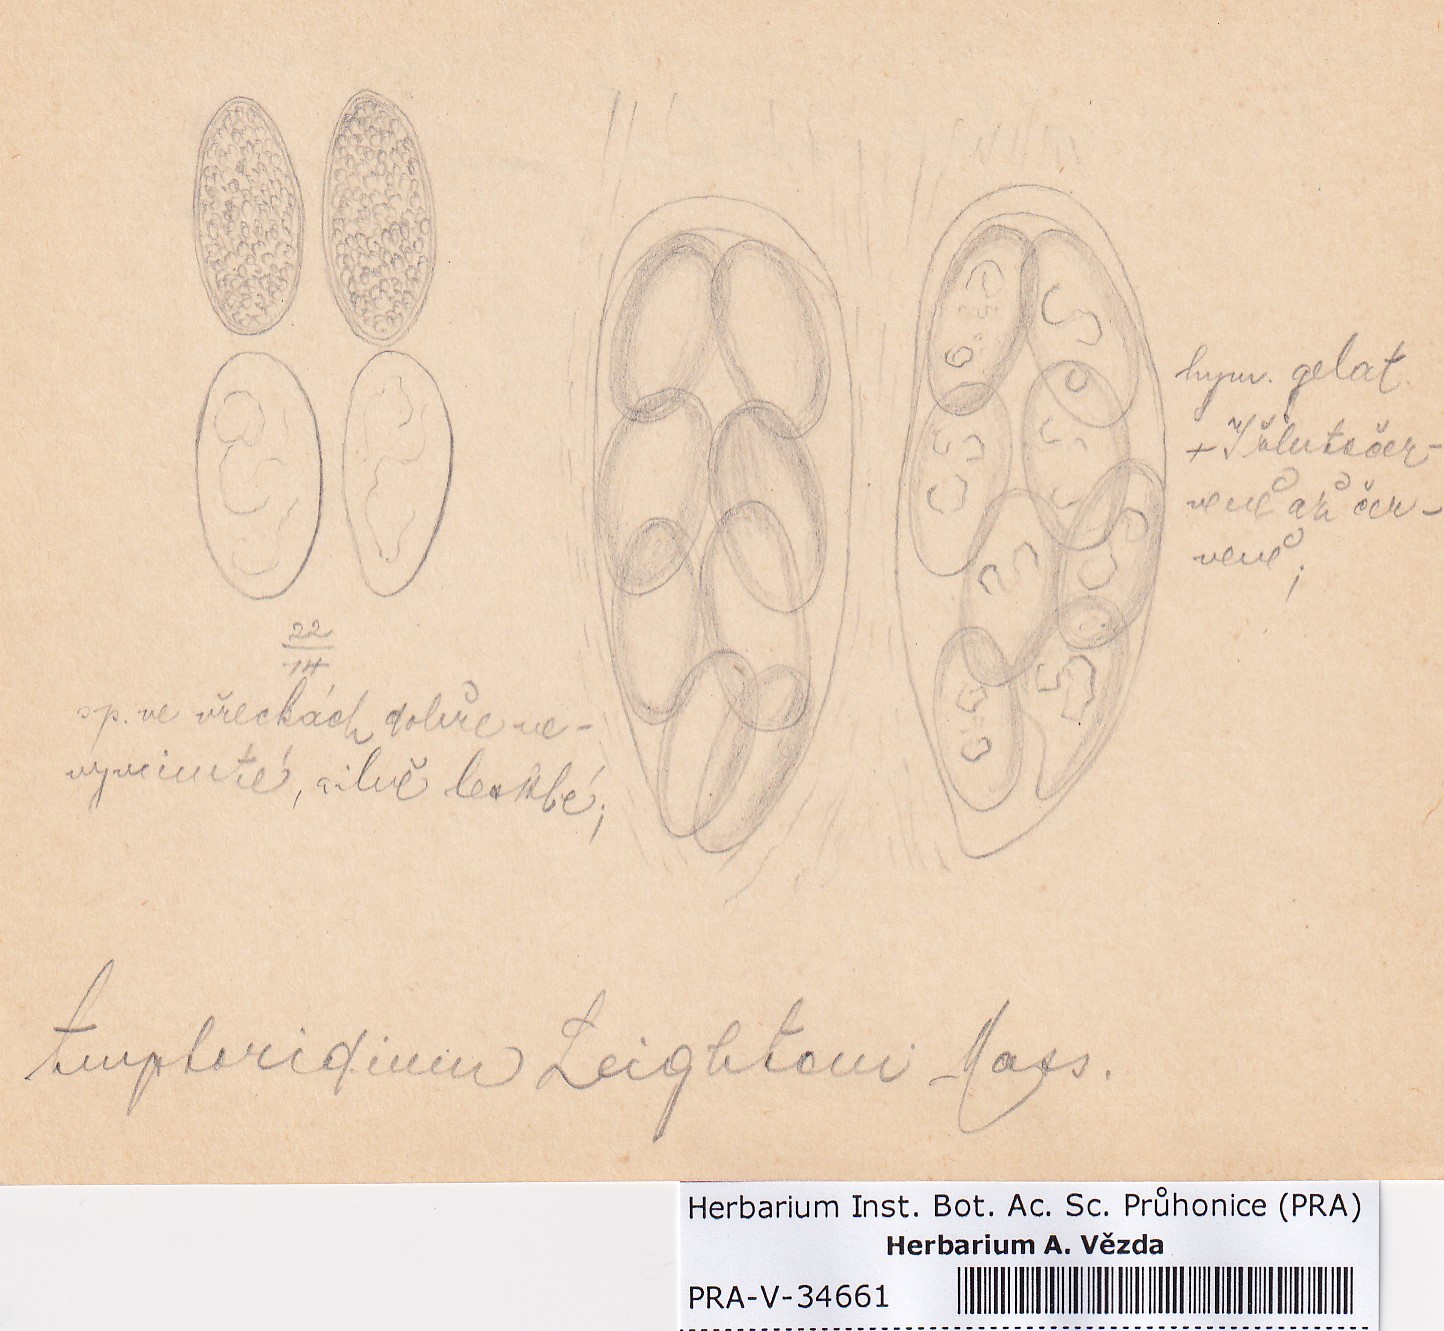 22
14
sp. ve vřeckách dobře ne-
vyvinuté, silně lesklé;
hym. gelat.
+ J žlutočer-
veně až čer-
veně;
Amphoridium Leightoni Mass.
Herbarium Inst. Bot. Ac. Sc. Průhonice (PRA)
Herbarium A. Vězda
PRA-V-34661